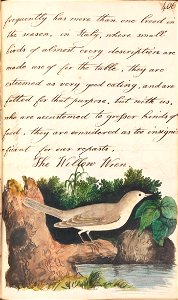 406
frequently has more than one brood in
the season, in Italy, where small
birds of almost every description are
made use of for the table, they are
esteemed as very good eating, and are
fatted for that purpose, but with us,
who are accustomed to grosser kinds of
food, they are considered as too insigni
ficant for our repasts.
The Willow Wren.